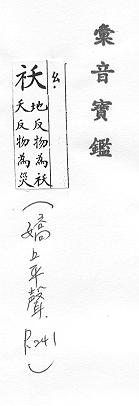 彙音寶鑑
祅
地反物為祅
天反物為災
(嬌上平聲 P.241)